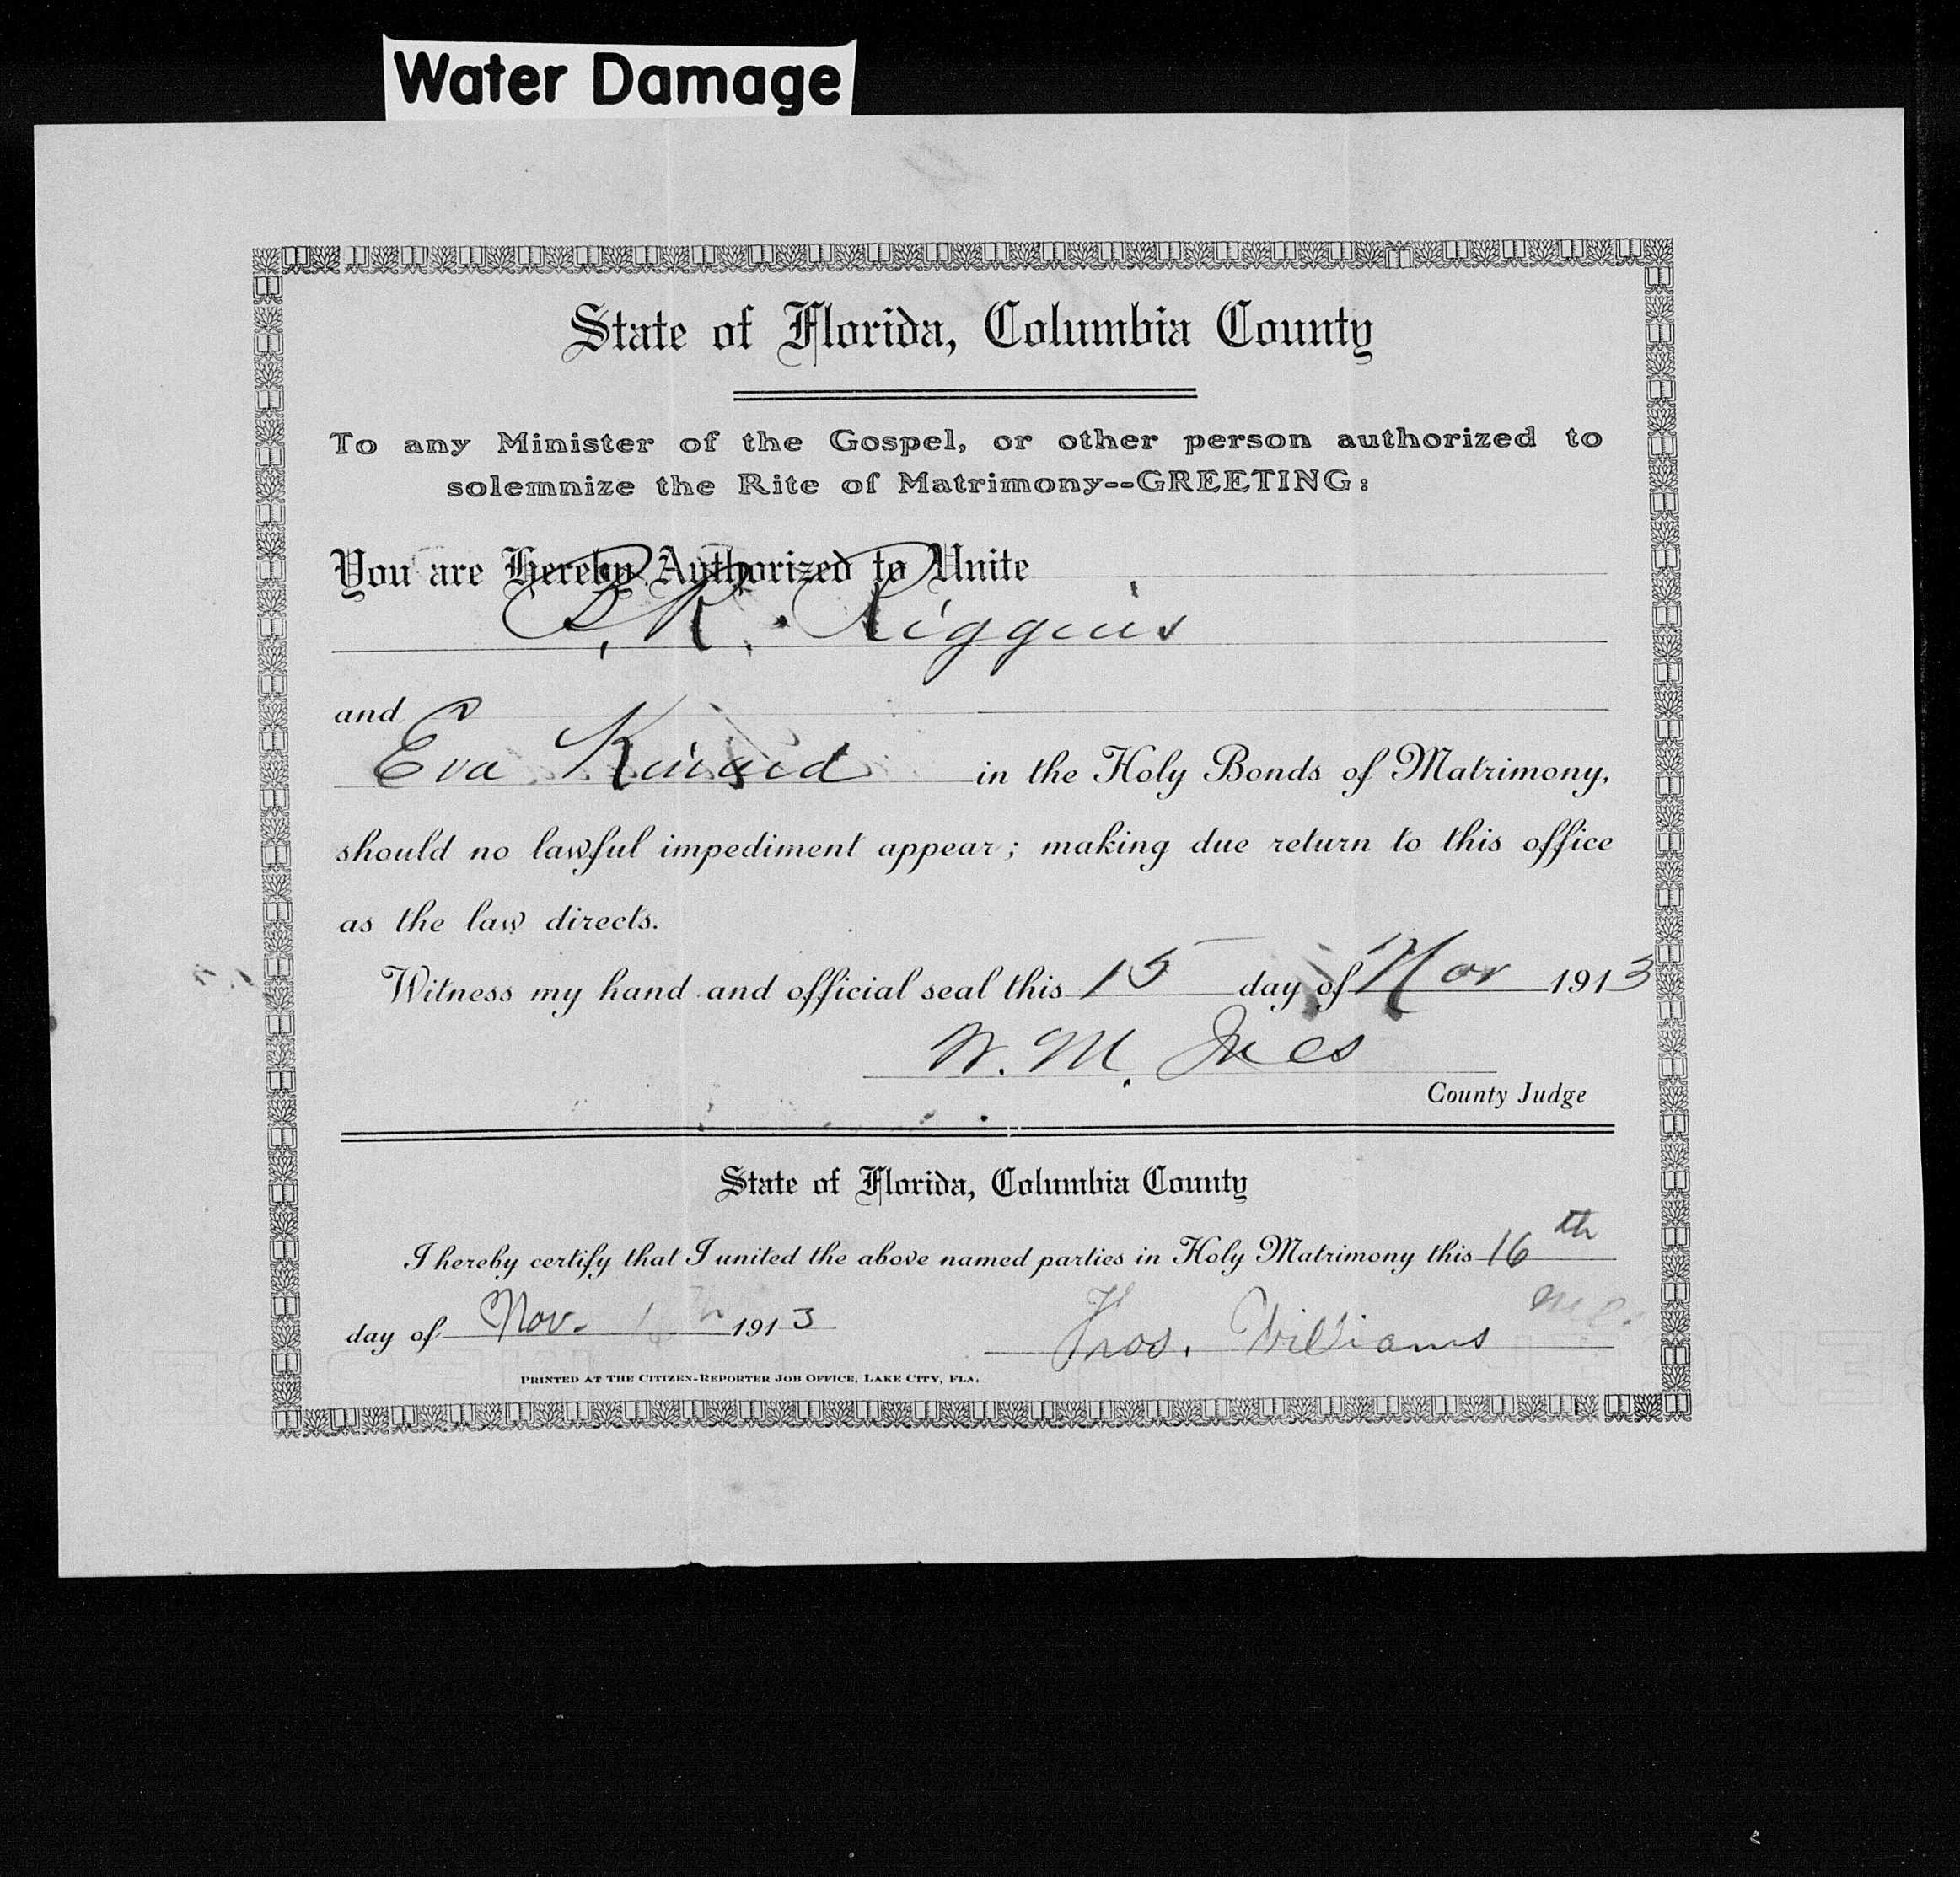 Water Damage
State of Florida, Columbia County
To any Minister of the Gospel, or other person authorized to
solemnize the Rite of Matrimony--GREETING:
You are Hereby Authorized to Unite
R. Riggins
and
Eva Kinard in the Holy Bonds of Matrimony,
should no lawful impediment appear; making due return to this office
as the law directs.
Witness my hand and official seal this 15 day of Nov 1913
W. M. Ives
County Judge
State of Florida, Columbia County
I hereby certify that I united the above named parties in Holy Matrimony this 16th
day of Nov. 1913 Thos. Williams
PRINTED AT THE CITIZEN-REPORTER JOB OFFICE, LAKE CITY, FLA.